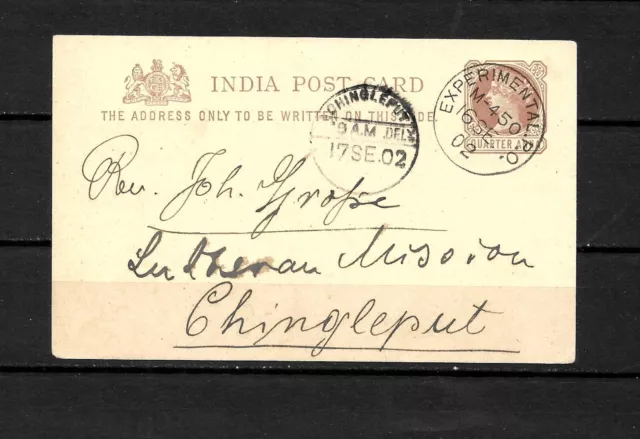 INDIA POST CARD
THE ADDRESS ONLY TO BE WRITTEN ON THIS SIDE.
CHINGLEPUT
9 A.M. DEL
17 SE. 02
EXPERIMENTAL P.O.
M-450
16 SE
02
QUARTER ANNA
Rev. Joh.
Lutheran Mission
Chingleput